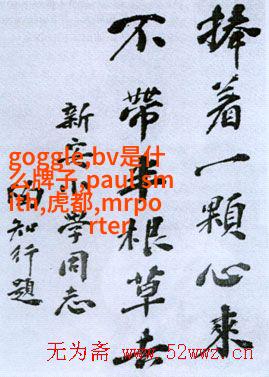 捧着一顆心來
不帶半根草去
新安小学同志
陶知行題
goggle bv是什
么牌子,paul sm
ith,虎都,mrpo
rter
无为斋 www.52wwz.cn